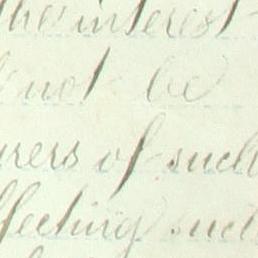 the interest
not be
urers of such
ffecting such